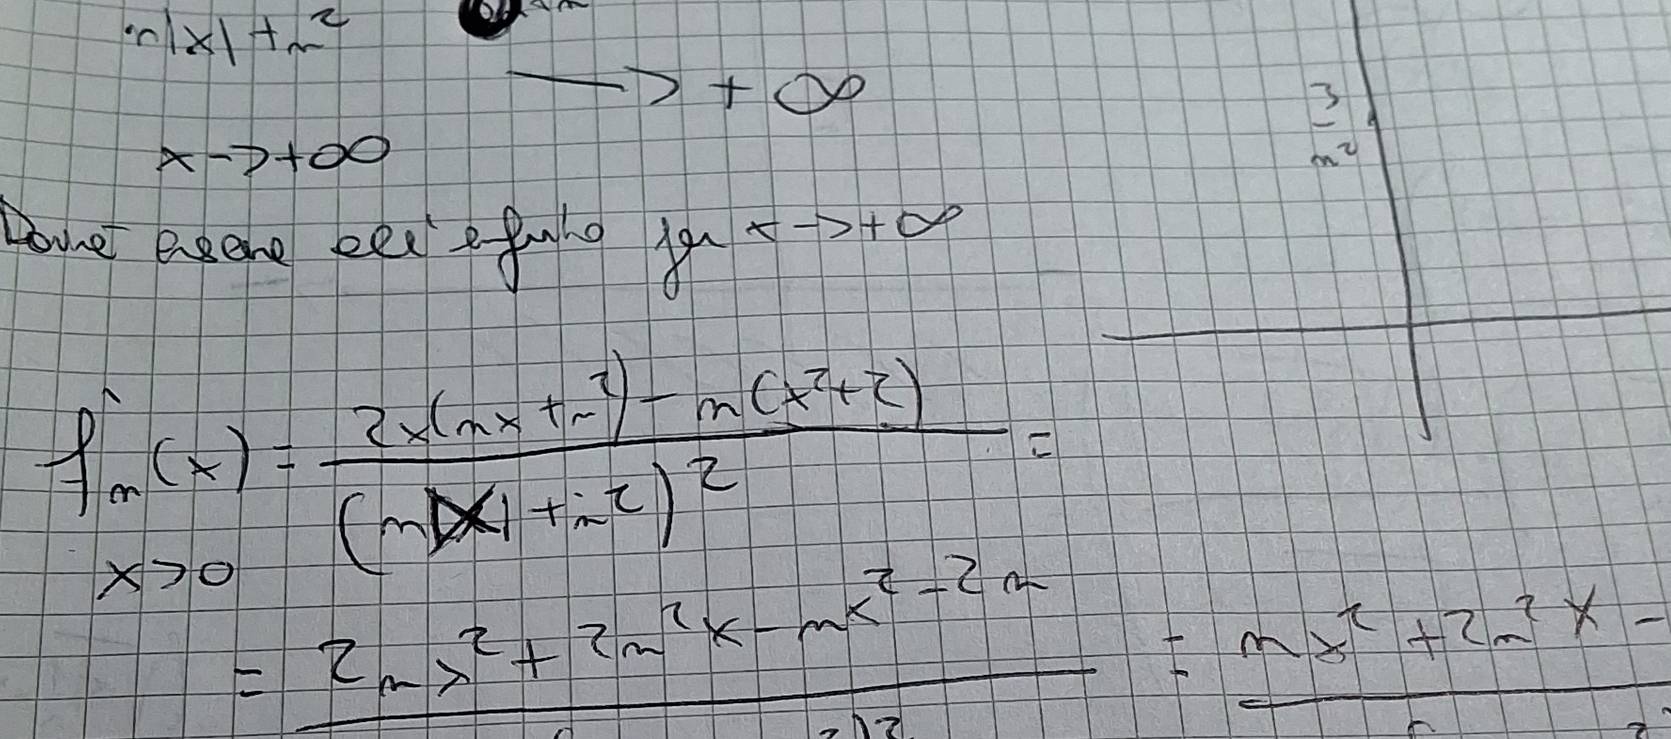 n|x| + n²
→ +∞
x → +∞
3/n²
Dovrei essere all'infinito per x → +∞
f'ₙ(x) = (2x(nx + n²) - n(x² + 2)) / (n|x| + n²)² =
x > 0
= 2nx² + 2n²x - nx² - 2n = nx² + 2n²x -